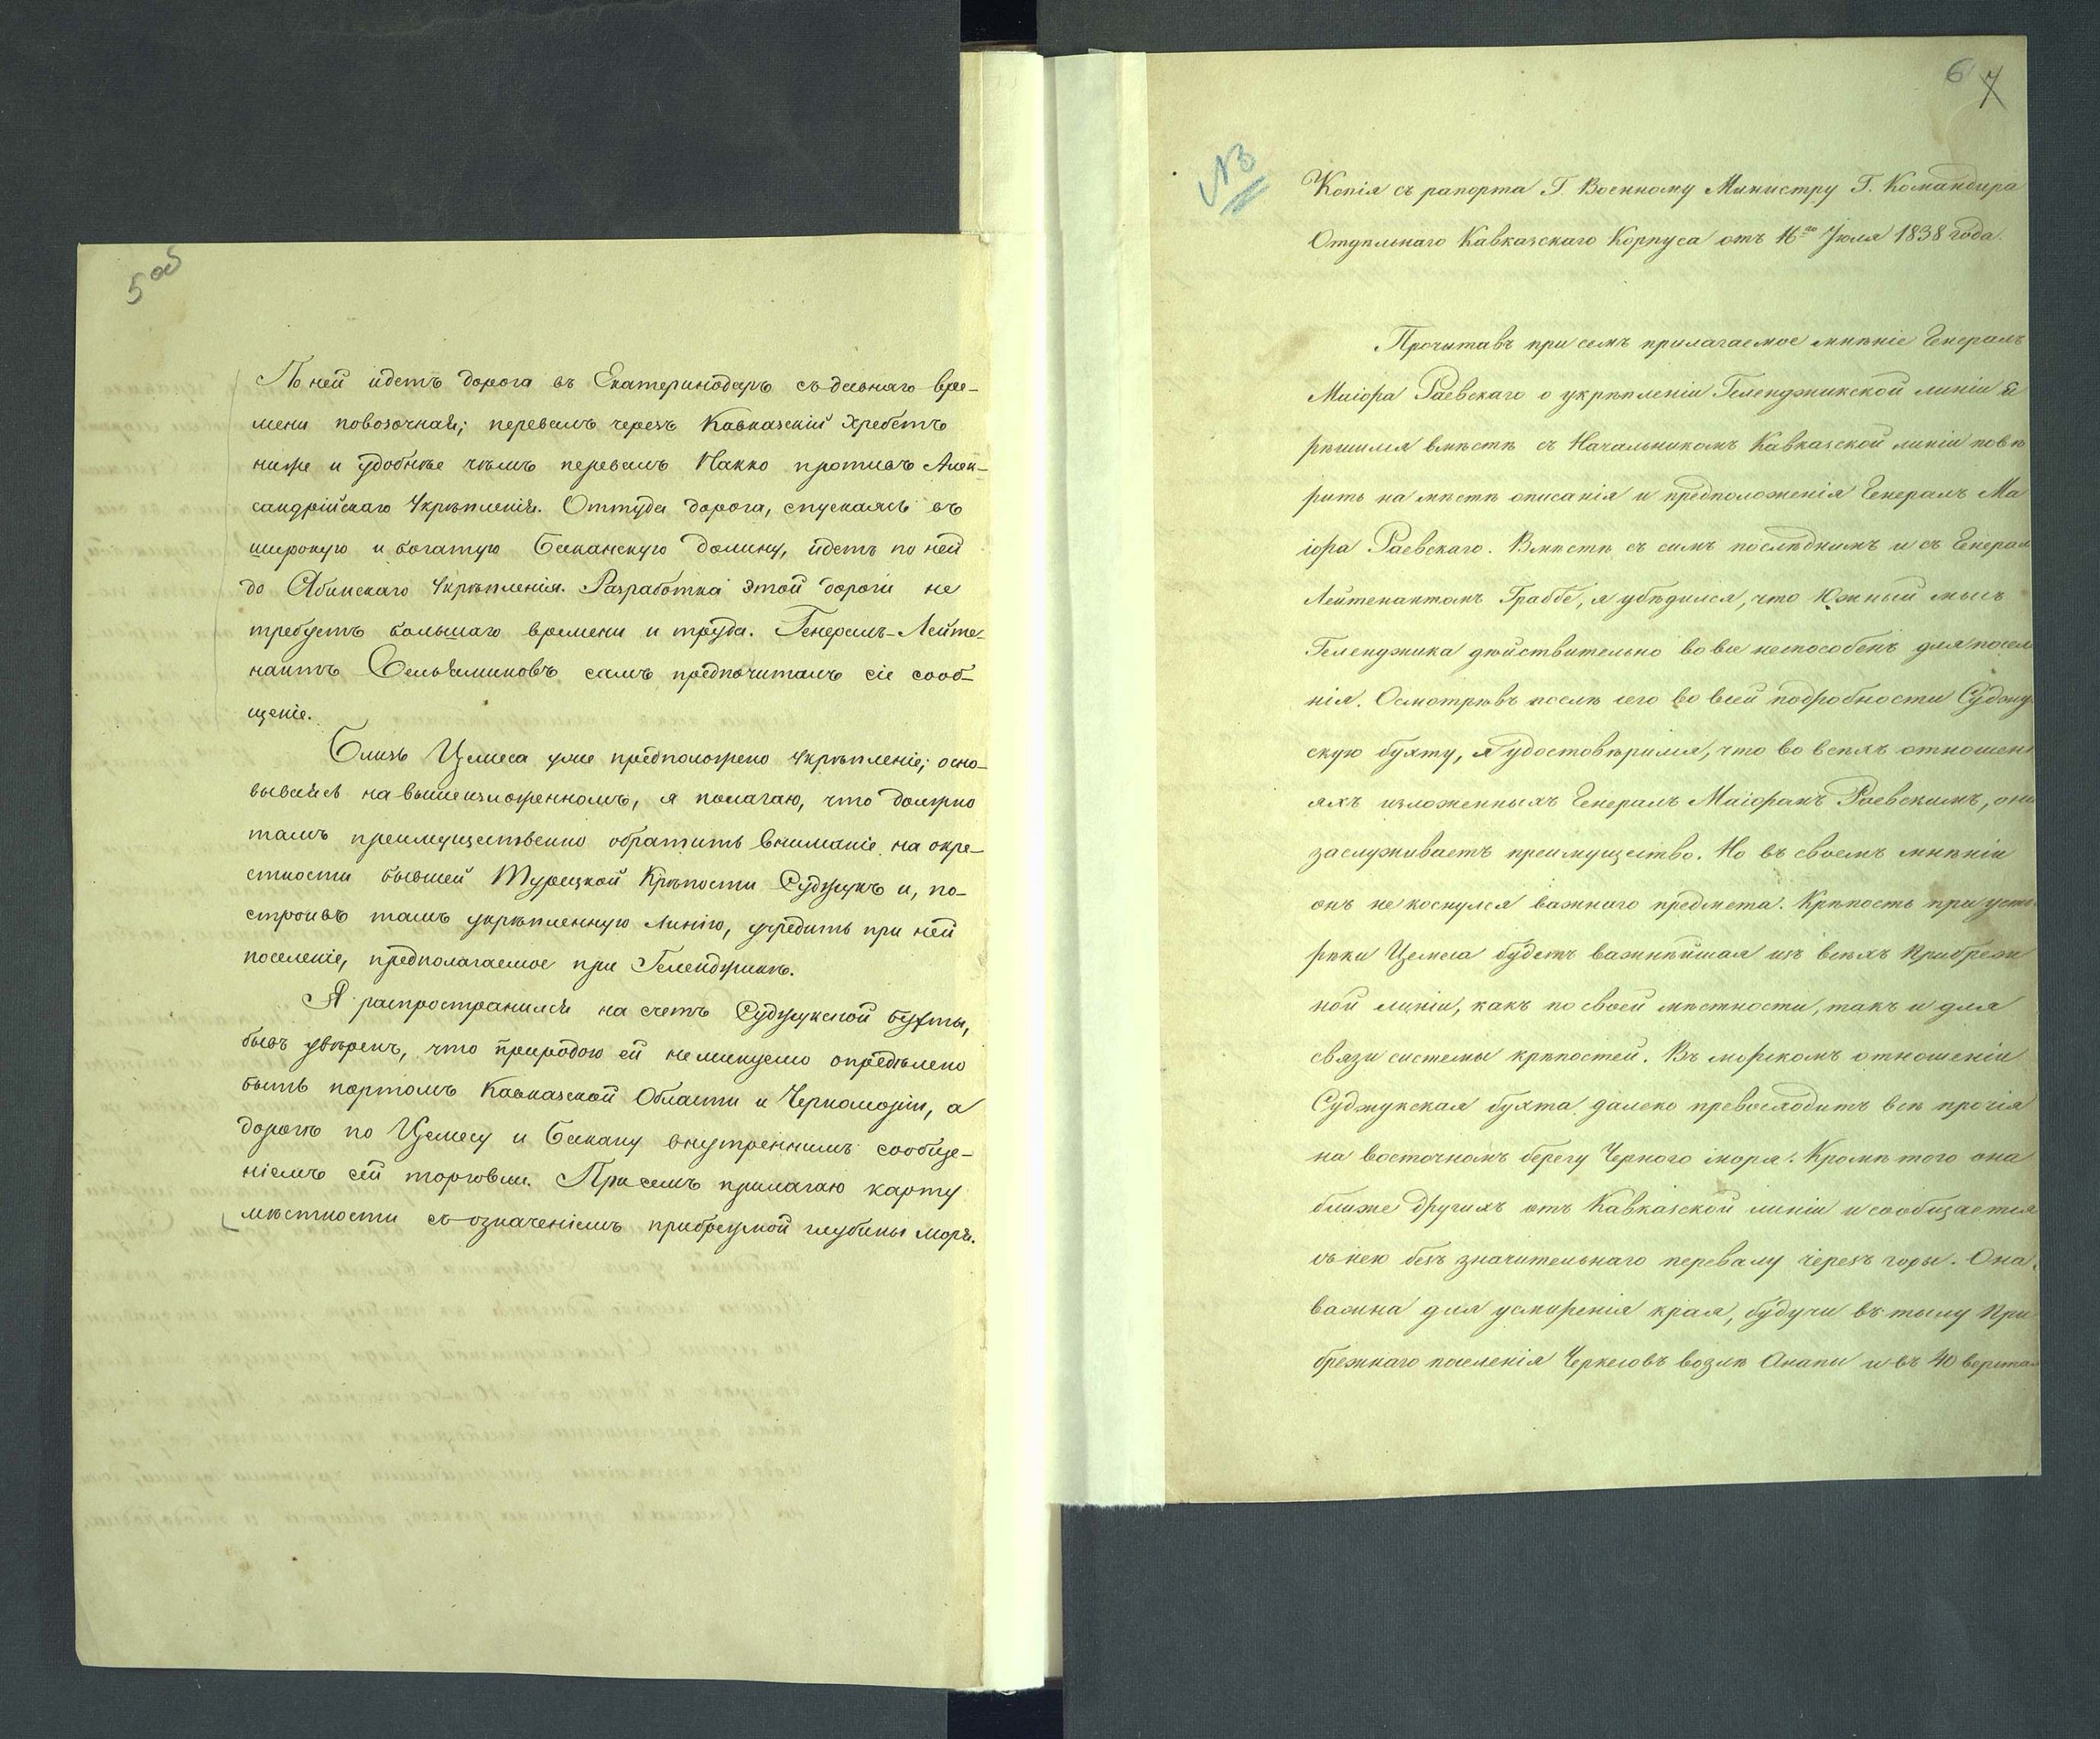 5 об
По ней идетъ дорога въ Екатеринодаръ съ давняго вре-
мени повозочная; перевалъ черезъ Кавказскій хребетъ
ниже и удобнѣе чѣмъ перевалъ Накко противъ Алек-
сандрійскаго Укрѣпленія. Оттуда дорога, спускаясь въ
широкую и богатую Баканскую долину, идетъ по ней
до Абинскаго Укрѣпленія. Разработка этой дороги не
требуетъ большаго времени и труда. Генералъ-Лейте-
нантъ Вельяминовъ самъ предпочиталъ сіе сооб-
щеніе.
Близь Цемеса уже предположено Укрѣпленіе; осно-
вываясь на вышеизложенномъ, я полагаю, что должно
тамъ преимущественно обратить вниманіе на окре-
стности бывшей Турецкой Крѣпости Суджукъ и, по-
строивъ тамъ укрѣпленную Линію, учредить при ней
поселеніе, предполагаемое при Геленджикѣ.
Я распространился на счетъ Суджукской бухты,
бывъ увѣренъ, что природою ей неминуемо опредѣлено
быть портомъ Кавказской Области и Черноморіи, а
дорогѣ по Цемесу и Бакану внутреннимъ сообще-
ніемъ сей торговли. При семъ прилагаю карту
мѣстности съ означеніемъ прибрежной глубины моря.
6 7
№3
Копія съ рапорта Г. Военному Министру Г. Командира
Отдѣльнаго Кавказскаго Корпуса отъ 16го Іюля 1838 года.
Прочитавъ при семъ прилагаемое мнѣніе Генералъ
Маіора Раевскаго о укрѣпленіи Геленджикской линіи я
рѣшился вмѣстѣ съ Начальникомъ Кавказской линіи повѣ
рить на мѣстѣ описанія и предположенія Генералъ Ма
іора Раевскаго. Вмѣстѣ съ симъ послѣднимъ и съ Генерал
Лейтенантомъ Граббе, я убѣдился, что Южный мысъ
Геленджика дѣйствительно вовсе неспособенъ для посел
нія. Осмотрѣвъ послѣ сего во всей подробности Суджук
скую бухту, я удостовѣрился, что во всѣхъ отношені
яхъ изложенныхъ Генералъ Маіоромъ Раевскимъ, она
заслуживаетъ преимущество. Но въ своемъ мнѣніи
онъ не коснулся важнаго предмета. Крѣпость при усть
рѣки Цемеса будетъ важнѣйшая изъ всѣхъ Прибреж
ной линіи, какъ по своей мѣстности, такъ и для
связи системы крѣпостей. Въ морскомъ отношеніи
Суджукская бухта далеко превосходитъ всѣ прочія
на восточномъ берегу Чернаго моря. Кромѣ того она
ближе другихъ отъ Кавказской линіи и сообщается
съ нею безъ значительнаго перевалу черезъ горы. Она
важна для усмиренія края, будучи въ тылу При
брежнаго поселенія Черкесовъ возлѣ Анапы и въ 40 верста